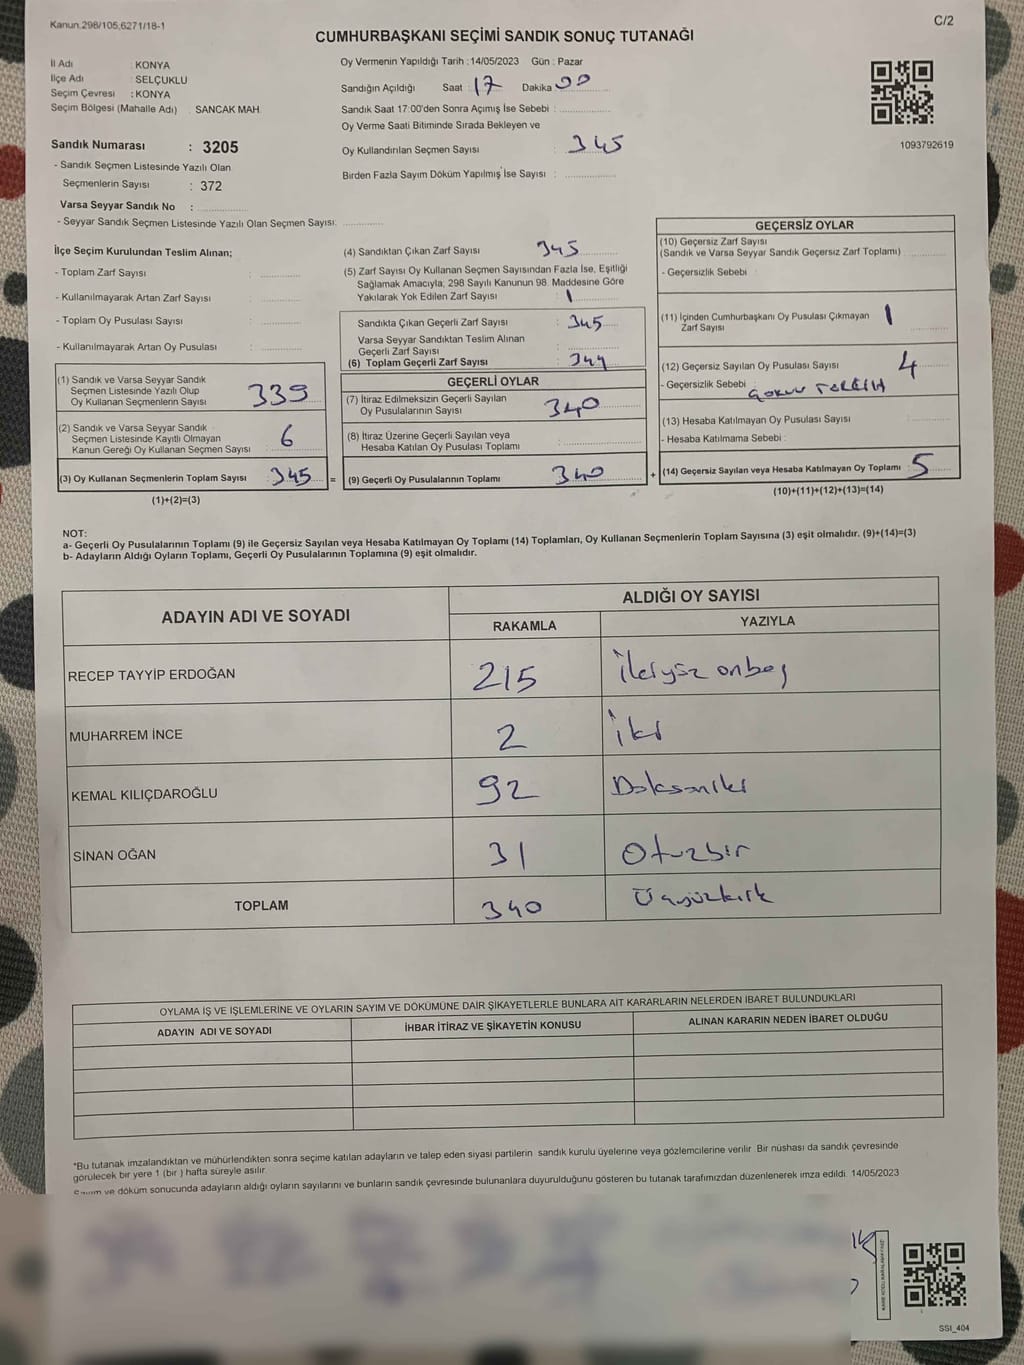 Kanun.298/105,6271/18-1
C/2
CUMHURBAŞKANI SEÇİMİ SANDIK SONUÇ TUTANAĞI
İl Adı : KONYA
İlçe Adı : SELÇUKLU
Seçim Çevresi : KONYA
Seçim Bölgesi (Mahalle Adı) : SANCAK MAH.
Sandık Numarası : 3205
- Sandık Seçmen Listesinde Yazılı Olan
Seçmenlerin Sayısı : 372
Varsa Seyyar Sandık No :
- Seyyar Sandık Seçmen Listesinde Yazılı Olan Seçmen Sayısı:
Oy Vermenin Yapıldığı Tarih :14/05/2023 Gün : Pazar
Sandığın Açıldığı Saat : 17 Dakika 00
Sandık Saat 17:00'den Sonra Açımış İse Sebebi :
Oy Verme Saati Bitiminde Sırada Bekleyen ve
Oy Kullandırılan Seçmen Sayısı : 345
Birden Fazla Sayım Döküm Yapılmış İse Sayısı :
1093792619
İlçe Seçim Kurulundan Teslim Alınan;
- Toplam Zarf Sayısı :
- Kullanılmayarak Artan Zarf Sayısı :
- Toplam Oy Pusulası Sayısı :
- Kullanılmayarak Artan Oy Pusulası :
(1) Sandık ve Varsa Seyyar Sandık
Seçmen Listesinde Yazılı Olup
Oy Kullanan Seçmenlerin Sayısı 339
(2) Sandık ve Varsa Seyyar Sandık
Seçmen Listesinde Kayıtlı Olmayan
Kanun Gereği Oy Kullanan Seçmen Sayısı : 6
(3) Oy Kullanan Seçmenlerin Toplam Sayısı : 345 =
(1)+(2)=(3)
(4) Sandıktan Çıkan Zarf Sayısı 345
(5) Zarf Sayısı Oy Kullanan Seçmen Sayısından Fazla İse, Eşitliği
Sağlamak Amacıyla; 298 Sayılı Kanunun 98. Maddesine Göre
Yakılarak Yok Edilen Zarf Sayısı : 1
Sandıkta Çıkan Geçerli Zarf Sayısı : 345
Varsa Seyyar Sandıktan Teslim Alınan
Geçerli Zarf Sayısı :
(6) Toplam Geçerli Zarf Sayısı : 344
GEÇERLİ OYLAR
(7) İtiraz Edilmeksizin Geçerli Sayılan
Oy Pusulalarının Sayısı : 340
(8) İtiraz Üzerine Geçerli Sayılan veya
Hesaba Katılan Oy Pusulası Toplamı :
(9) Geçerli Oy Pusulalarının Toplamı : 340 +
GEÇERSİZ OYLAR
(10) Geçersiz Zarf Sayısı
(Sandık ve Varsa Seyyar Sandık Geçersiz Zarf Toplamı)
- Geçersizlik Sebebi :
(11) İçinden Cumhurbaşkanı Oy Pusulası Çıkmayan
Zarf Sayısı 1
(12) Geçersiz Sayılan Oy Pusulası Sayısı : 4
- Geçersizlik Sebebi :
(13) Hesaba Katılmayan Oy Pusulası Sayısı
- Hesaba Katılmama Sebebi :
(14) Geçersiz Sayılan veya Hesaba Katılmayan Oy Toplamı : 5
(10)+(11)+(12)+(13)=(14)
NOT:
a- Geçerli Oy Pusulalarının Toplamı (9) ile Geçersiz Sayılan veya Hesaba Katılmayan Oy Toplamı (14) Toplamları, Oy Kullanan Seçmenlerin Toplam Sayısına (3) eşit olmalıdır. (9)+(14)=(3)
b- Adayların Aldığı Oyların Toplamı, Geçerli Oy Pusulalarının Toplamına (9) eşit olmalıdır.
ADAYIN ADI VE SOYADI
ALDIĞI OY SAYISI
RAKAMLA YAZIYLA
RECEP TAYYİP ERDOĞAN 215 İkiyüz onbeş
MUHARREM İNCE 2 İki
KEMAL KILIÇDAROĞLU 92 Doksaniki
SİNAN OĞAN 31 Otuzbir
TOPLAM 340 Üçyüzkırk
OYLAMA İŞ VE İŞLEMLERİNE VE OYLARIN SAYIM VE DÖKÜMÜNE DAİR ŞİKAYETLERLE BUNLARA AİT KARARLARIN NELERDEN İBARET BULUNDUKLARI
ADAYIN ADI VE SOYADI İHBAR İTİRAZ VE ŞİKAYETİN KONUSU ALINAN KARARIN NEDEN İBARET OLDUĞU
*Bu tutanak imzalandıktan ve mühürlendikten sonra seçime katılan adayların ve talep eden siyasi partilerin sandık kurulu üyelerine veya gözlemcilerine verilir. Bir nüshası da sandık çevresinde
görülecek bir yere 1 (bir ) hafta süreyle asılır.
Sayım ve döküm sonucunda adayların aldığı oyların sayılarını ve bunların sandık çevresinde bulunanlara duyurulduğunu gösteren bu tutanak tarafımızdan düzenlenerek imza edildi. 14/05/2023
SSI_404